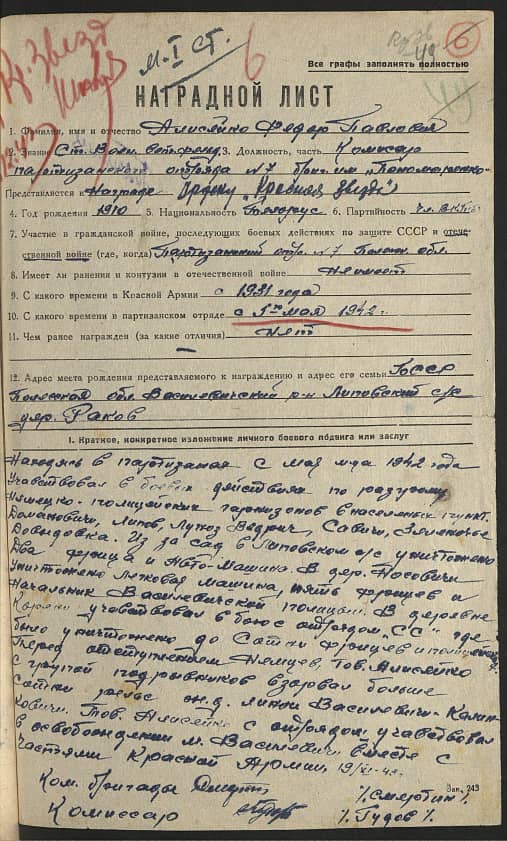 Кр. Звезд
М. I ст. 6
6
49
Все графы заполнять полностью
НАГРАДНОЙ ЛИСТ
1. Фамилия, имя и отчество Алисейко Федор Павлович
2. Звание Ст. Воен. 3. Должность, часть Комисар
партизанского отряда № 7 бриг. им „Пономоренко„
Представляется к Награде Ордену „Красная звезда"
4. Год рождения 1910 5. Национальность Белорус 6. Партийность
7. Участие в гражданской войне, последующих боевых действиях по защите СССР и отече-
ственной войне (где, когда) Партизанский отр. № 7 Полес. обл.
8. Имеет ли ранения и контузии в отечественной войне Неимеет
9. С какого времени в Красной Армии с 1931 года
10. С какого времени в партизанском отряде с 1го мая 1942 г.
11. Чем ранее награжден (за какие отличия) Нет
12. Адрес места рождения представляемого к награждению и адрес его семьи БССР
Полесская обл. Василевичский р-н Липовский с/с
дер. Раков
I. Краткое, конкретное изложение личного боевого подвига или заслуг
Находясь в партизанах с мая м-ца 1942 года
Учавствовал в боевых действиях по разгрому
Немецко-полицейских гарнизонов в населенных пункт.
Домановичи, Липов, Ведрич, Савичи,
Давыдовка. Из за сад в Липовском с/с уничтожено
Два фрица и Авто-Машина. В дер. Носовичи
Уничтожено Легковая машина, пять фрицев и
Начальник Василевичской полиции. В деревне
учавствовал в бою с отрядом „СС" где
было уничтожено до Сотни Фрицев и полицейских.
Перед отступлением Немцев, Тов. Алисейко
с групой подрывников взорвал больше
сотни рельс ж.д. линии Василевичи-Калин-
ковичи. Тов. Алисейко с отрядом учавствовал
в освобождении м. Василевичи вместе с
Частями Красной Армии. 19/XI-43г.
Ком. бригады /Смертин/
Зак. 243
Комиссар /Гудов/.